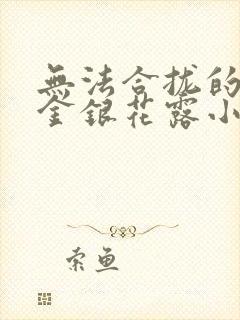 無法合拢的
金銀花露小
索鱼